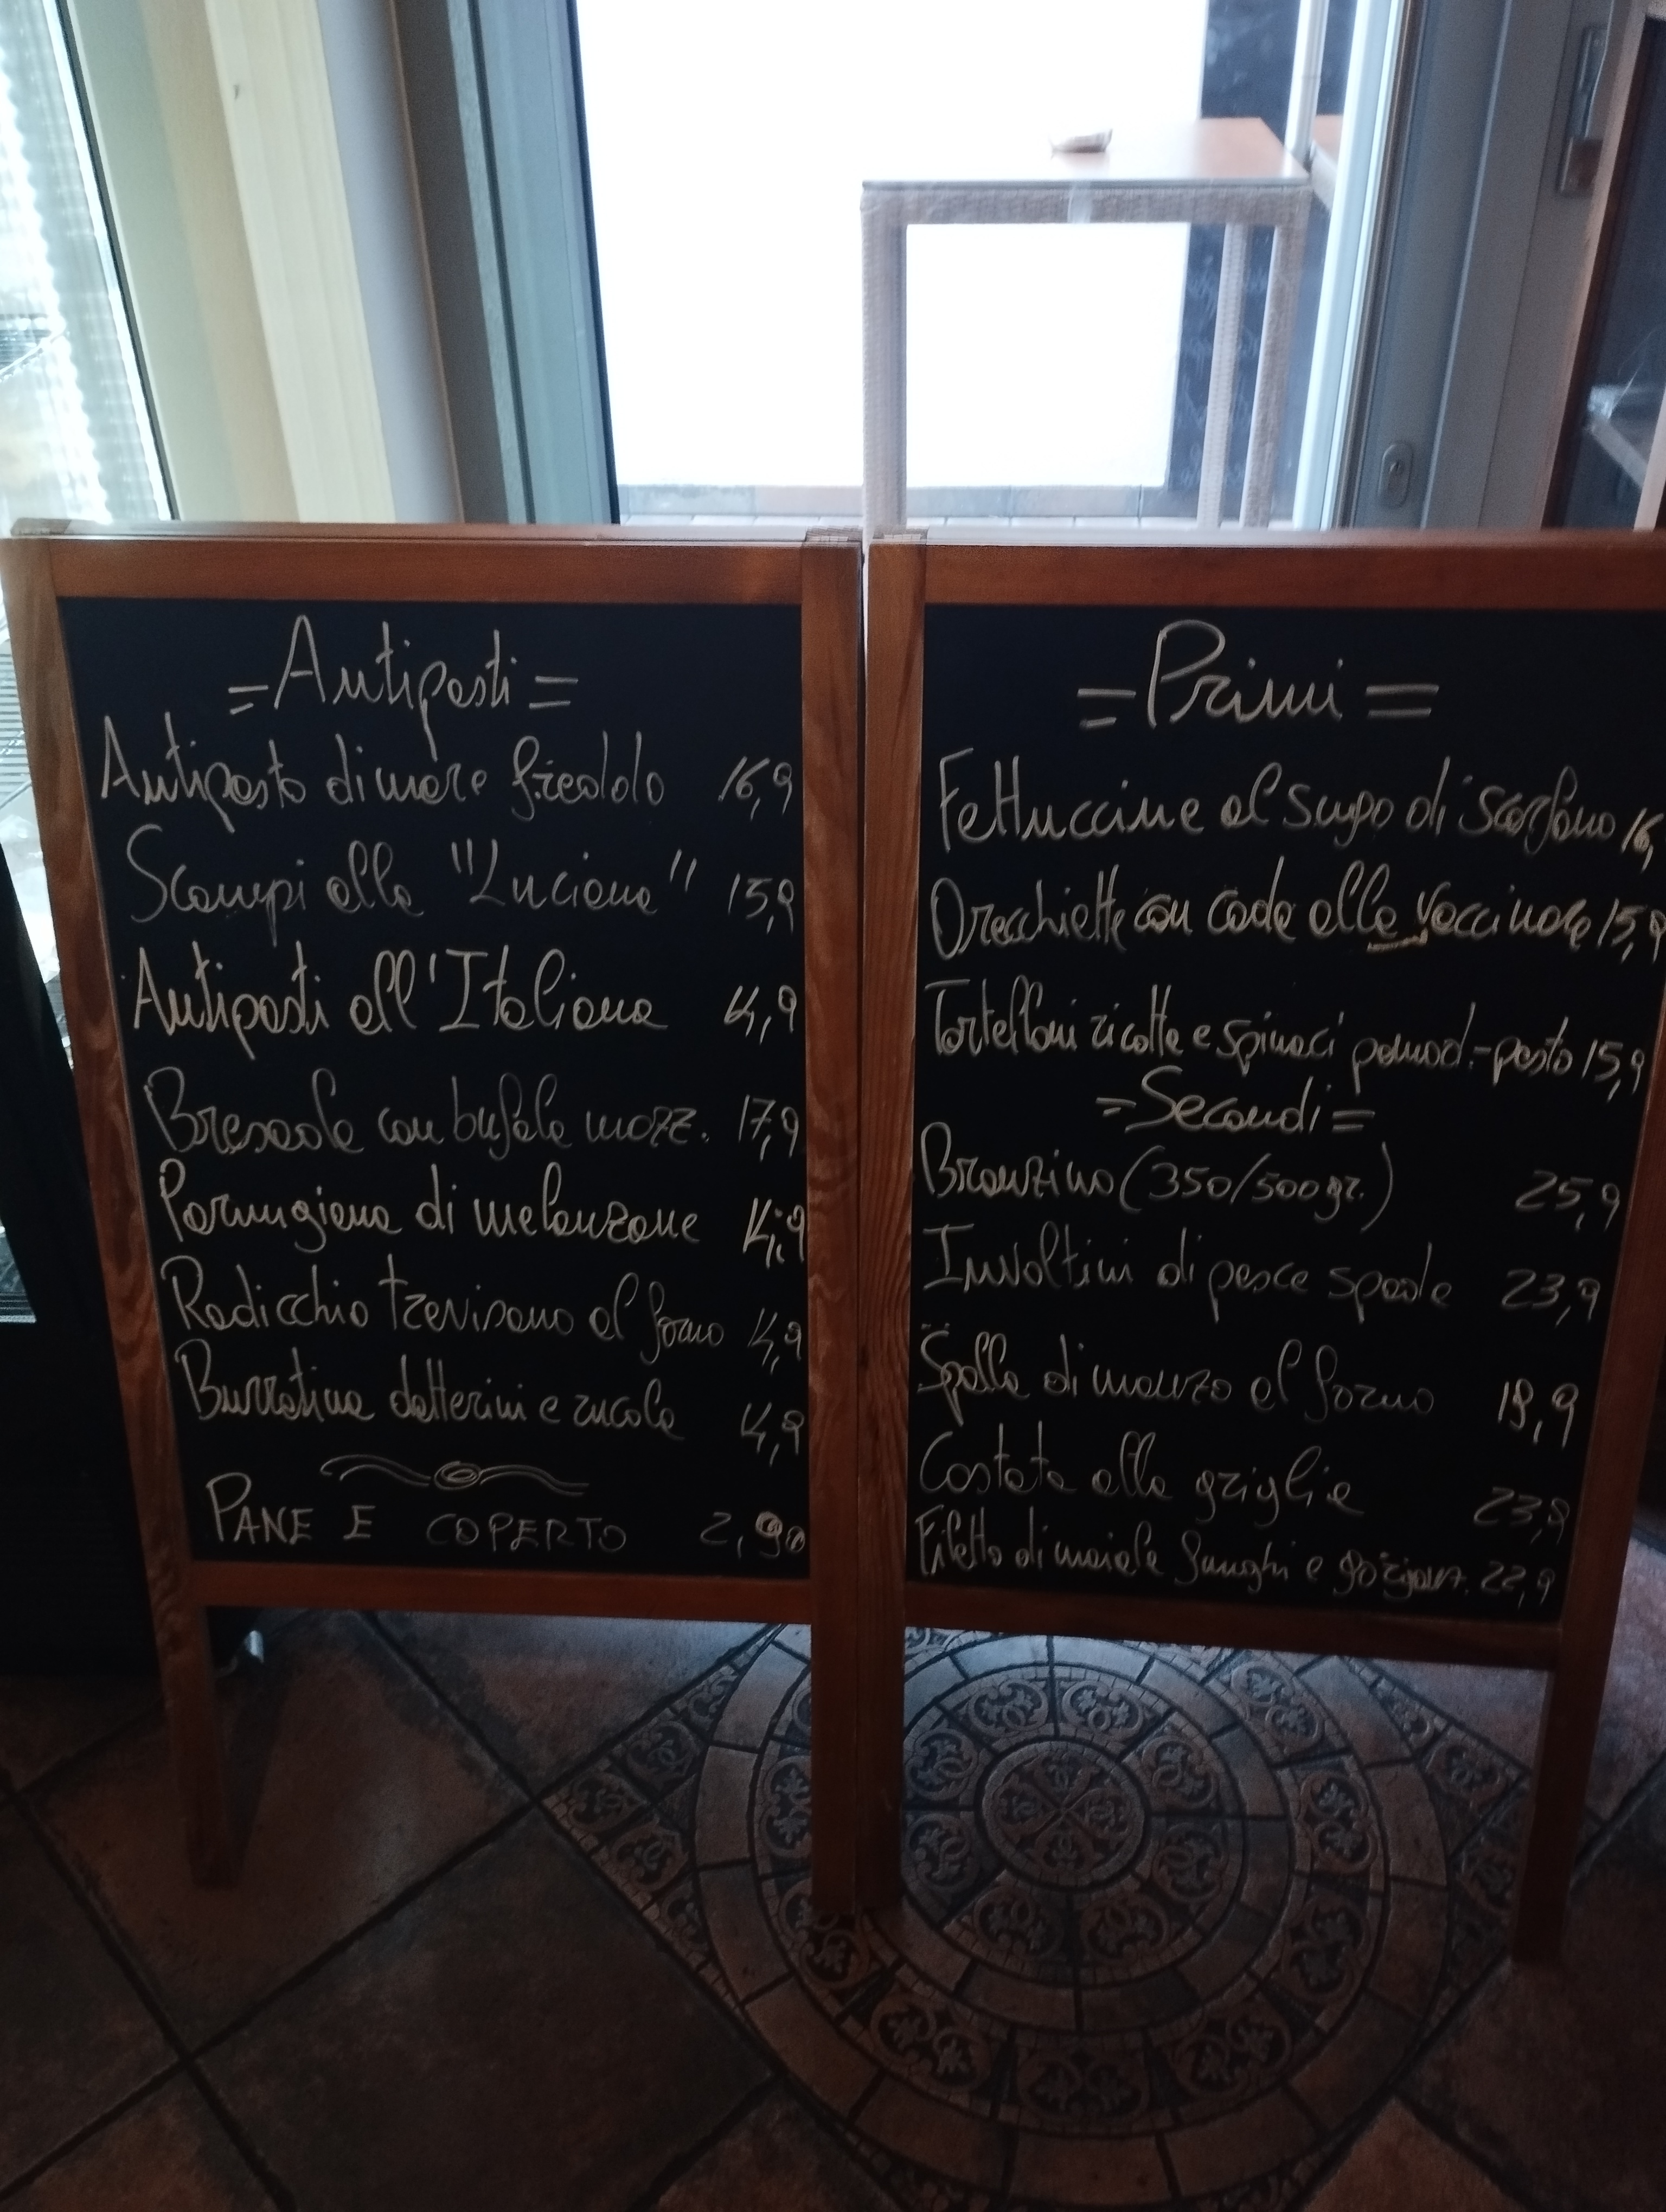 =Antipasti=
Antipasto di mare freddo 16,9
Scampi alla "Luciana" 15,9
Antipasti all'Italiana 14,9
Bresaola con bufala mozz. 17,9
Parmigiana di melanzane 14,9
Radicchio trevisano al forno 14,9
Burratina datterini e rucola 14,9
PANE E COPERTO 2,90
=Primi=
Fettuccine al sugo di scorfano 16,
Orecchiette con coda alla vaccinara 15,9
Tortelloni ricotta e spinaci pomod.-pesto 15,9
=Secondi=
Branzino (350/500gr.) 25,9
Involtini di pesce spada 23,9
Spalla di manzo al forno 19,9
Costata alla griglia 23,9
Filetto di maiale funghi e 22,9